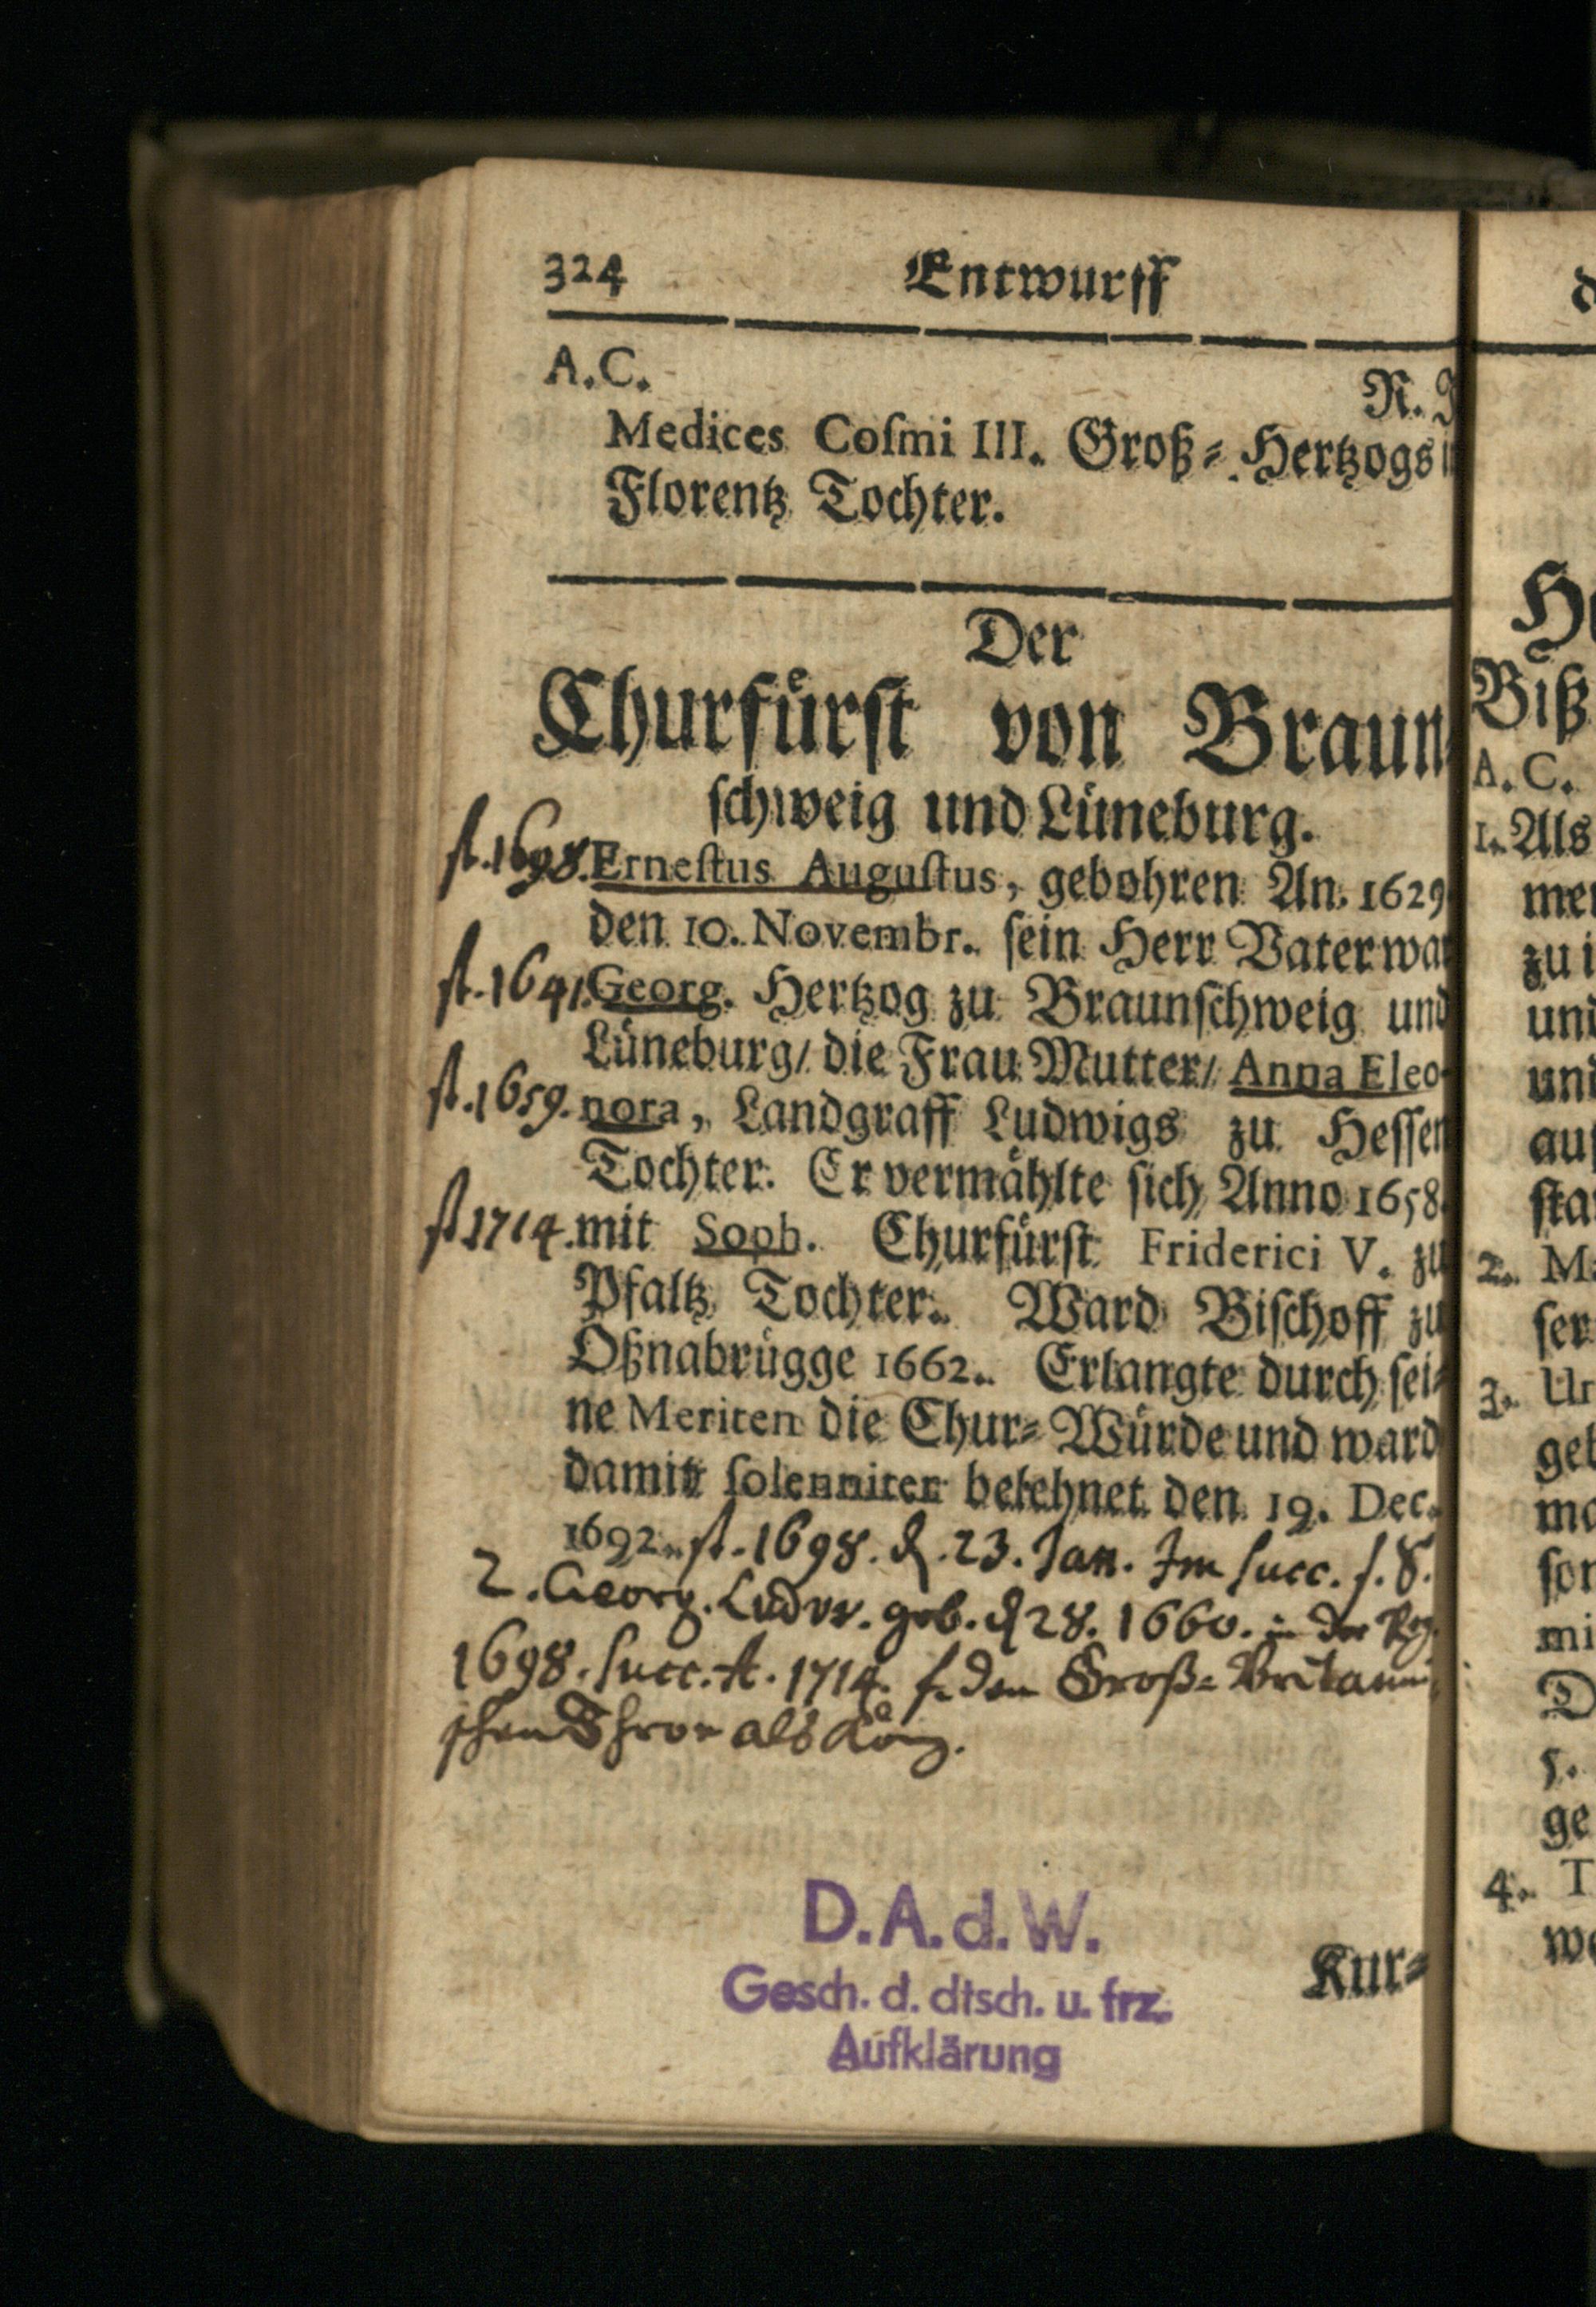 324 Entwurff
A.C. R.
Medices Coſmi III. Groß⸗Hertzogs
Florentz Tochter.
Der
Churfürſt von Braun
ſchweig und Lüneburg.
ſt. 1698. Erneſtus Auguſtus, gebohren An. 1629
den 10. Novembr. ſein Herr Vater war
ſt. 1641. Georg. Hertzog zu Braunſchweig und
Lüneburg/ die Frau Mutter/ Anna Eleo-
ſt. 1659. nora, Landgraff Ludwigs zu Heſſen
Tochter. Er vermählte ſich Anno 1658.
ſt 1714. mit Soph. Churfürſt Friderici V. zu
Pfaltz Tochter. Ward Biſchoff zu
Oßnabrügge 1662. Erlangte durch ſei⸗
ne Meriten die Chur⸗Würde und ward
damit ſolenniter belehnet den 19. Dec.
1692. ſt. 1698. d. 23. Jan. Im ſucc. ſ. S.
2. Georg. Ludw. geb. d 28. 1660. in der Reg.
1698. ſucc. A. 1714. den Groß⸗Britanni
ſchen Thron als König.
D.A.d.W.
Gesch. d. dtsch. u. frz.
Aufklärung
Kur⸗
Biß
A.C.
1. Als
2.
3.
5.
ge
4.